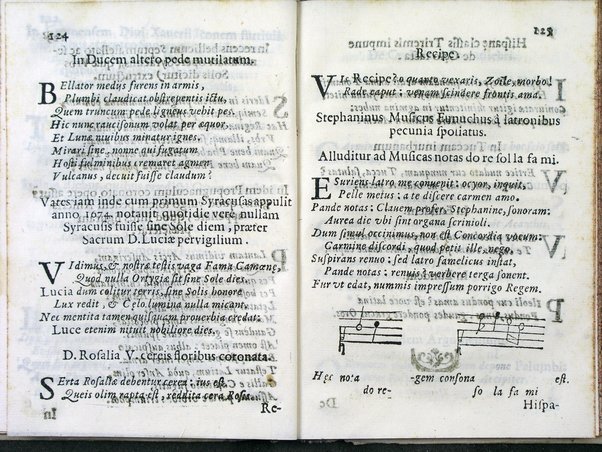 124
In Ducem altero pede mutilatum.
Bellator medus furens in armis,
Plumbi claudicat obstrepentis ictu,
Quem truncum pede ligneus vehit pes.
Hic nunc rauçisonum volat per æquor,
Et Lunæ nuibus minatur ignes.
Mirari sine, nonne qui fugatum
Hosti fulminibus cremaret agmen
Vulcanus, decuit fuisse claudum?
Vates iam inde cum primum Syracusas appulit
anno 1674. notauit quotidie verè nullam
Syracusis fuisse sine Sole diem, præter
Sacrum D. Luciæ pervigilium.
Vidimus, & nostræ testis vaga Fama Camœnæ,
Quod nulla Ortygia sit sine Sole dies.
Lucia dum colitur terris, sine Solis honore
Lux redit, & Cœlo lumina nulla micant.
Nec mentita tamen quisquam prouerbia credat:
Luce etenim nituit nobiliore dies.
D. Rosalia V. cereis floribus coronata.
Serta Rosaliæ debentur cerea: ius est.
Queis olim rapta est, reddita cera Rosis.
Re-
125
Recipe.
Vis Recipe? o quanto vexaris, Zoile, morbo!
Rade caput: venam scindere frontis ama.
Stephaninus Musicus Eunuchus à latronibus
pecunia spoliatus.
Alluditur ad Musicas notas do re sol la fa mi.
Esuriens latro me conuenit: ocyor, inquit,
Pelle metus: a te discere carmen amo.
Pande notas: Clauem profer, Stephanine, sonoram:
Aurea dic vbi sint organa scrinioli.
Dum simul occinimus, non est Concordia vocum:
Carmine discordi quod petit ille, nego.
Suspirans renuo: sed latro famelicus instat,
Pande notas: renuis? verbere terga sonent.
Fur vt edat, nummis impressum porrigo Regem.
Hęc nota -gem consona est.
do re- so la fa mi
Hispa-